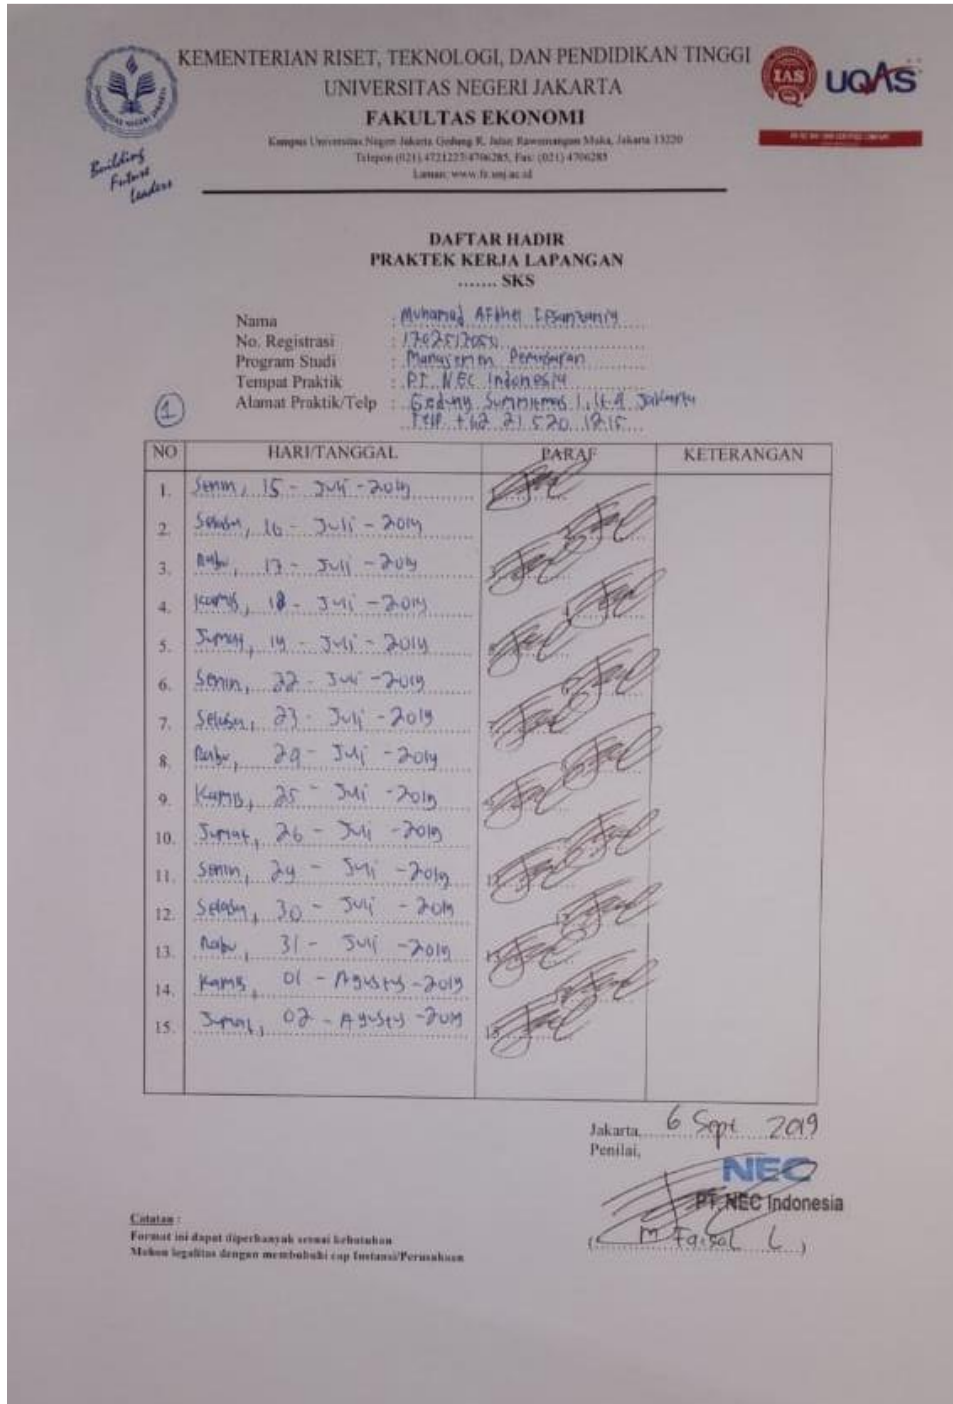 KEMENTERIAN RISET, TEKNOLOGI, DAN PENDIDIKAN TINGGI
UNIVERSITAS NEGERI JAKARTA
FAKULTAS EKONOMI
Kampus Universitas Negeri Jakarta Gedung R, Jalan Rawamangun Muka, Jakarta 13220
Telepon (021) 4721227/4706285, Fax: (021) 4706285
Laman: www.fe.unj.ac.id
Building
Future
Leaders
IAS
UQAS
DAFTAR HADIR
PRAKTEK KERJA LAPANGAN
....... SKS
Nama : Muhamad
No. Registrasi :
Program Studi : Manajemen Pemasaran
Tempat Praktik : PT. NEC Indonesia
Alamat Praktik/Telp : Gedung Summitmas 1, lt. 9 Jakarta
Telp +62 21 520 1215
1
NO HARI/TANGGAL PARAF KETERANGAN
1. Senin, 15 - Juli - 2019
2. Selasa, 16 - Juli - 2019
3. Rabu, 17 - Juli - 2019
4. Kamis, 18 - Juli - 2019
5. Jumat, 19 - Juli - 2019
6. Senin, 22 - Juli - 2019
7. Selasa, 23 - Juli - 2019
8. Rabu, 24 - Juli - 2019
9. Kamis, 25 - Juli - 2019
10. Jumat, 26 - Juli - 2019
11. Senin, 29 - Juli - 2019
12. Selasa, 30 - Juli - 2019
13. Rabu, 31 - Juli - 2019
14. Kamis, 01 - Agustus - 2019
15. Jumat, 02 - Agustus - 2019
Jakarta, 6 Sept 2019
Penilai,
NEC
PT. NEC Indonesia
( M Faisal L )
Catatan :
Format ini dapat diperbanyak sesuai kebutuhan
Mohon legalitas dengan membubuhi cap Instansi/Perusahaan